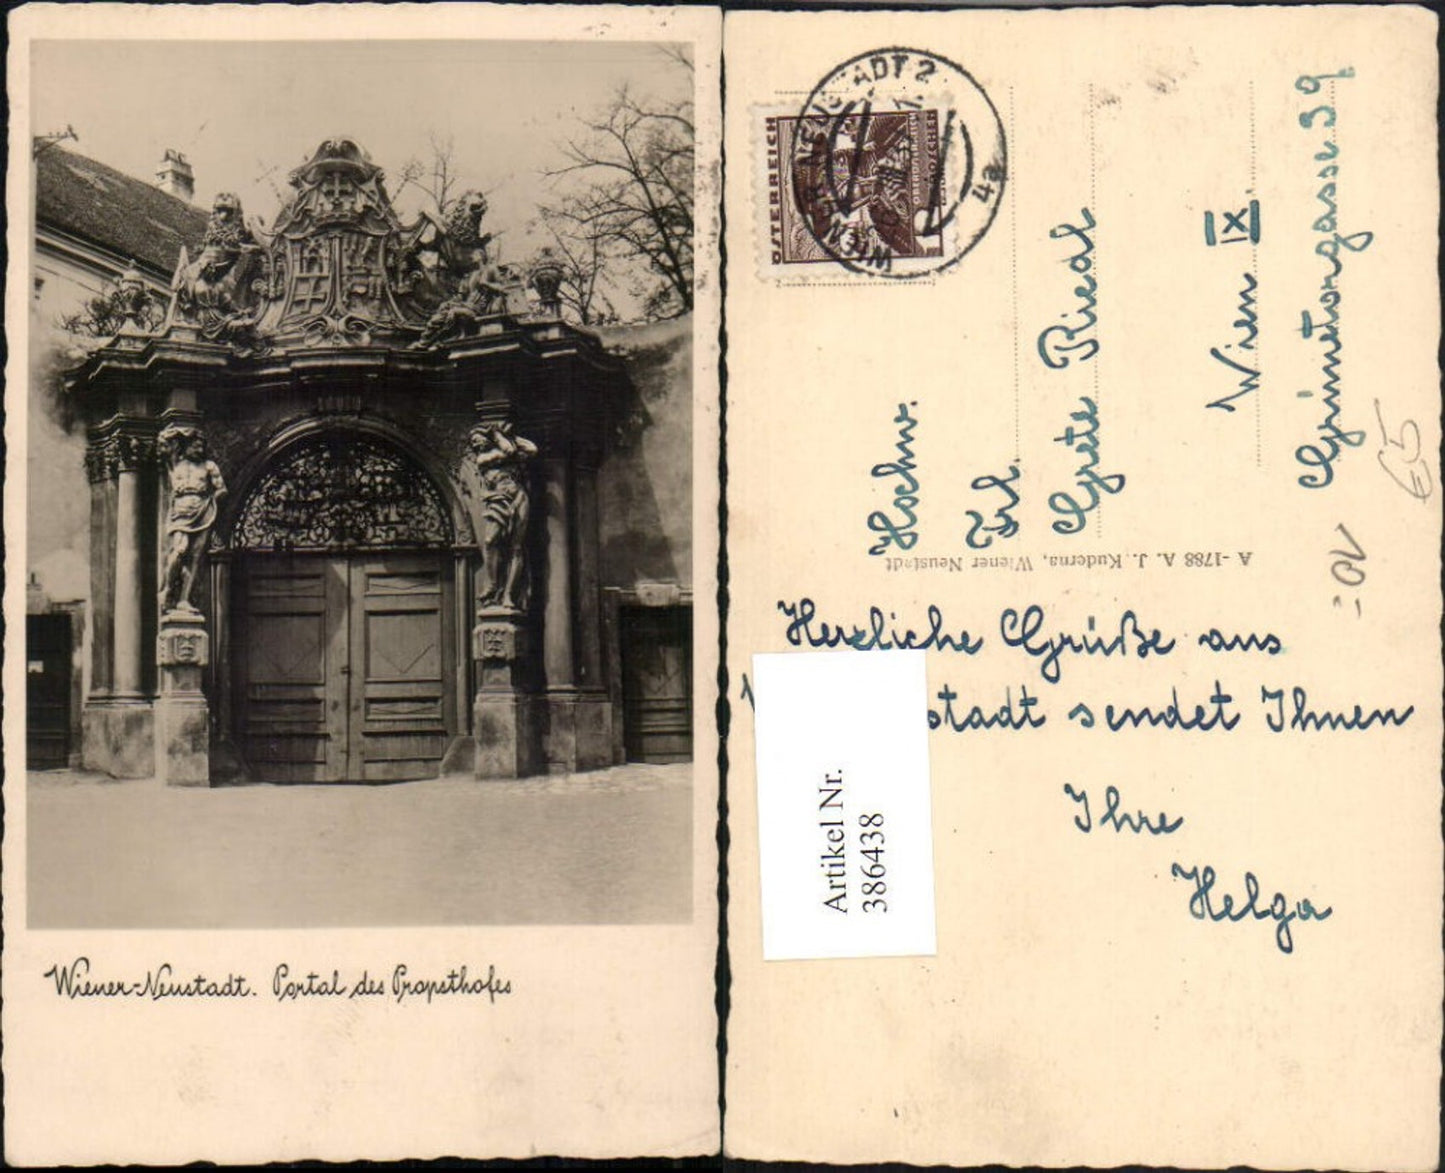 Wiener-Neustadt. Portal des Propsthofes
ÖSTERREICH
WIENER NEUSTADT 2
4a
Hochw.
Frl.
Grete Riedl
Wien IX.
Grünetorgasse 39
A-1788 A. J. Kuderna, Wiener Neustadt
Herzliche Grüße aus
stadt sendet Ihnen
Ihre
Helga
Artikel Nr.
386438